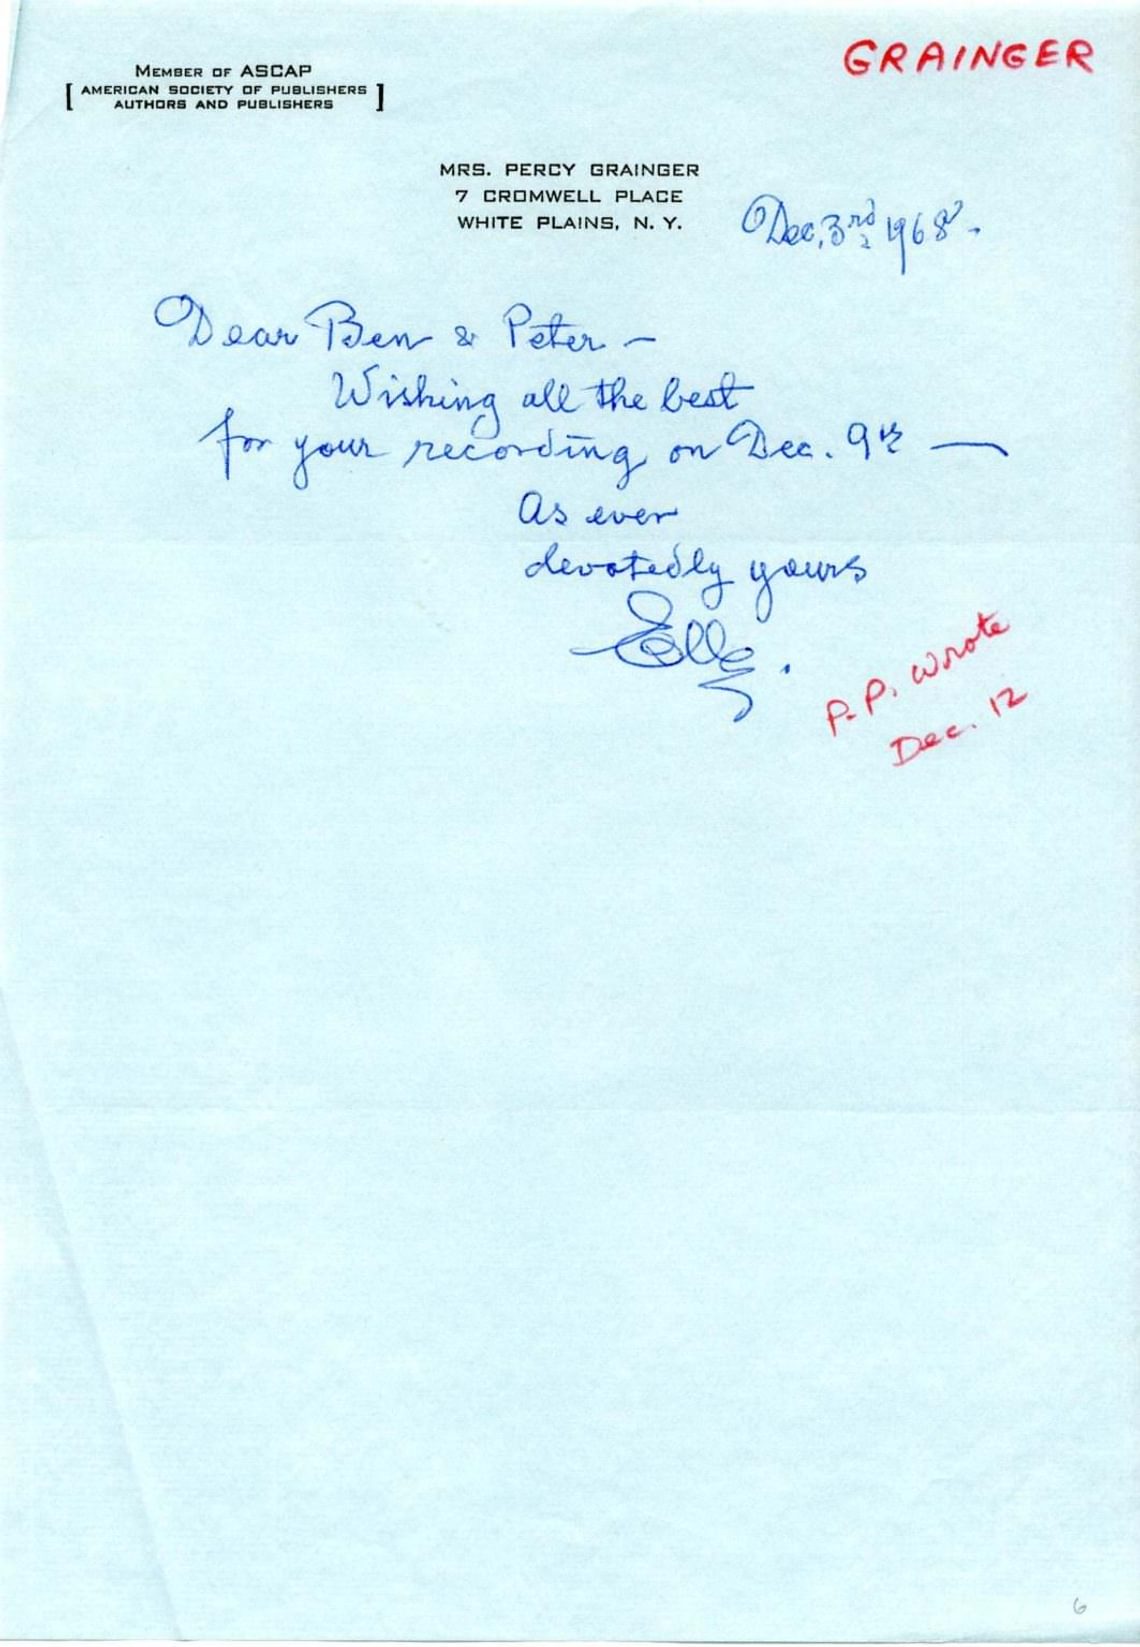 GRAINGER
MEMBER OF ASCAP
[ AMERICAN SOCIETY OF PUBLISHERS
AUTHORS AND PUBLISHERS ]
MRS. PERCY GRAINGER
7 CROMWELL PLACE
WHITE PLAINS, N. Y.
Dec, 3rd 1968.
Dear Ben & Peter —
Wishing all the best
for your recording on Dec. 9th —
As ever
devotedly yours
Ella.
P.P. wrote
Dec. 12
6